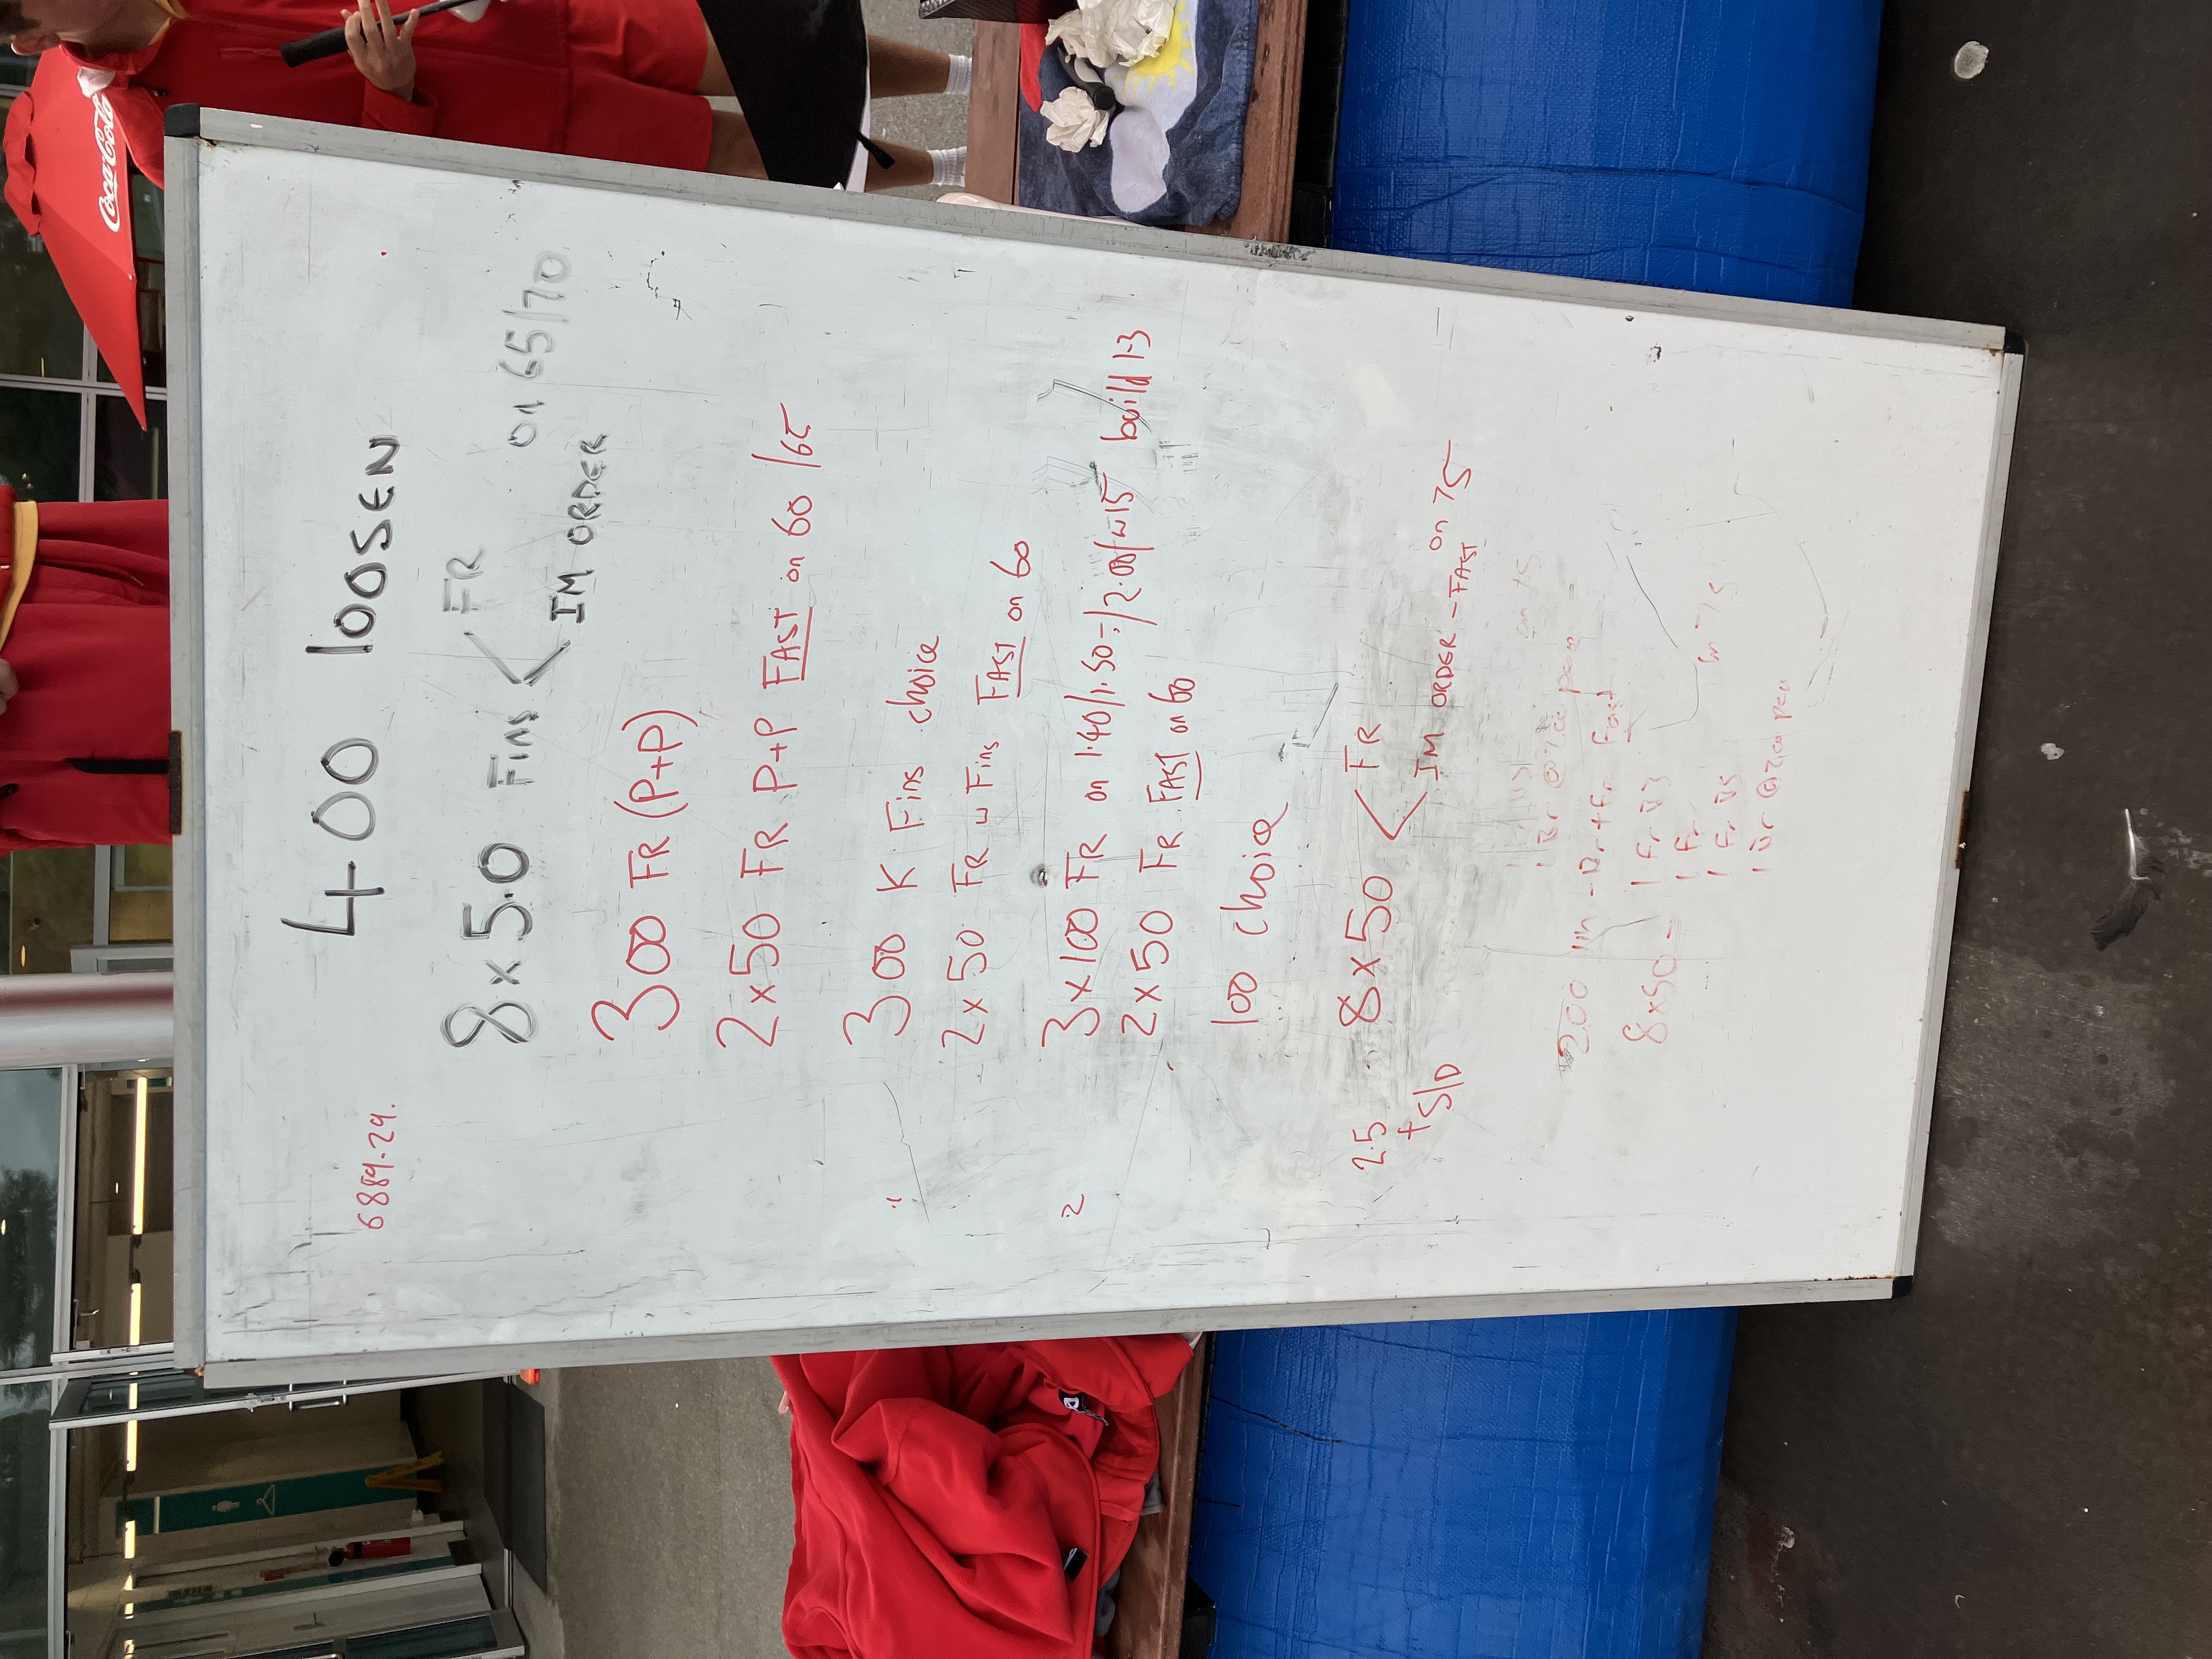 Coca-Cola
400 loosen
6889.29.
8x50 Fins < FR
IM ORDER
on 65/70
300 FR (P+P)
2x50 FR P+P FAST on 60/65
.1
300 K Fins choice
2x50 FR w Fins FAST on 60
2
3x100 FR on 1.40/1.50-:/2.00/w15 build 1-3
2x50 FR FAST on 60
100 choice
2.5
+S/D
8x50 < FR
IM ORDER - FAST on 75
on 75
1 Br @200 pace
200 IM - Br + Fr Fast
8x50 - 1 Fr B3
1 Fr
1 Fr B5
on 75
1 Br @200 pace